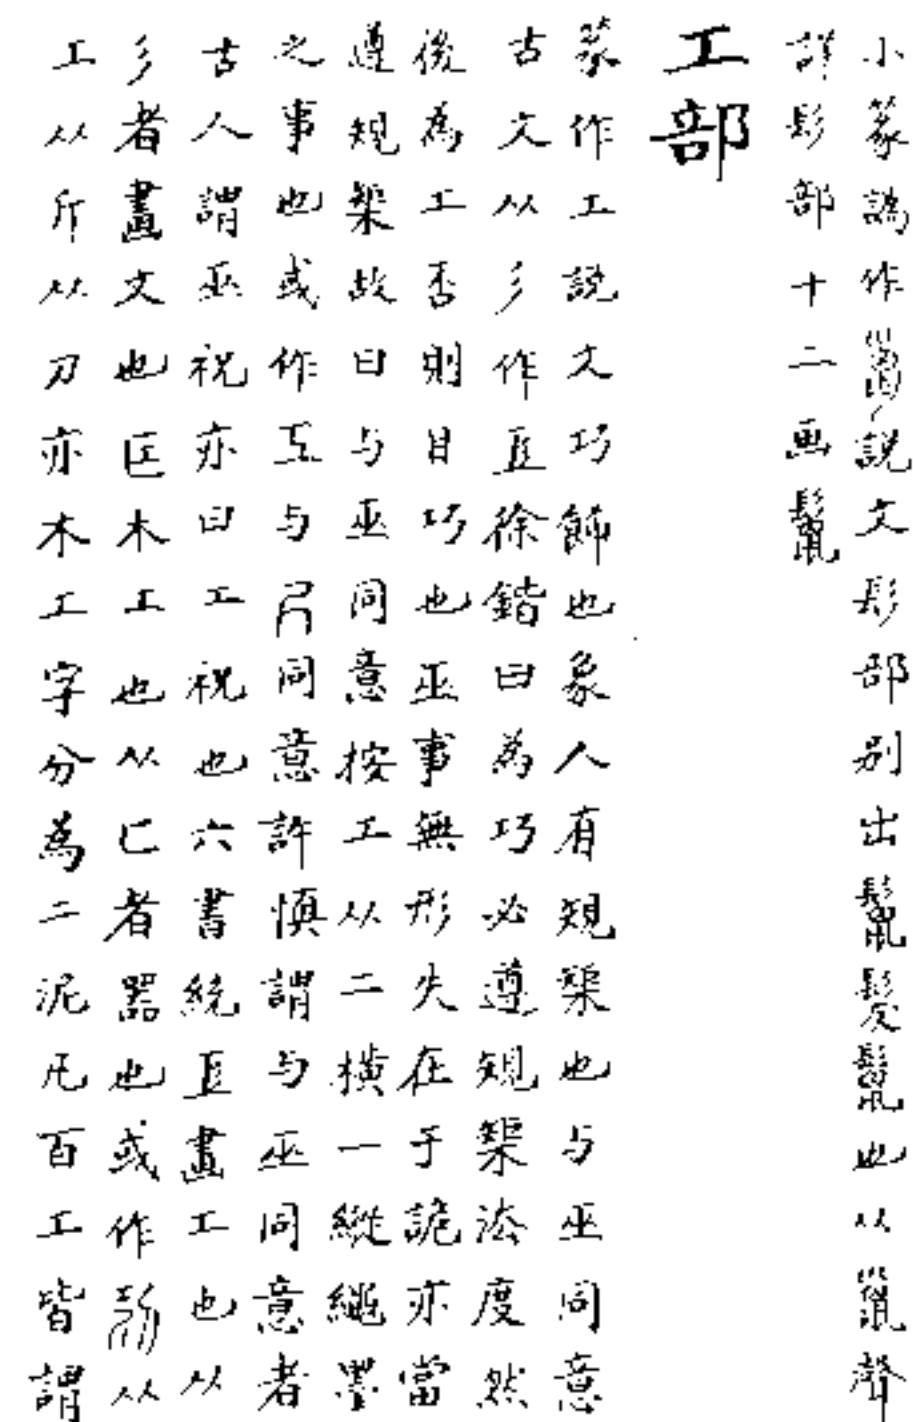 小篆譌作𡿺說文髟部別出鬣髮鬣也从巤聲
詳髟部十二画鬣
工部
篆作工說文巧飾也象人有規榘也与巫同意
古文从彡作𢒄徐鍇曰為巧必遵規榘法度然
後為工否則目巧也巫事無形失在于詭亦當
遵規榘故曰与巫同意按工从二横一縱繩墨
之事也或作𢒄与同意許慎謂与巫同意者
古人謂巫祝亦曰工祝也六書統𢒄畫工也从
彡者畫文也匞木工也从匚者器也或作从
工从斤从刀亦木工字分為二泥凡百工皆謂